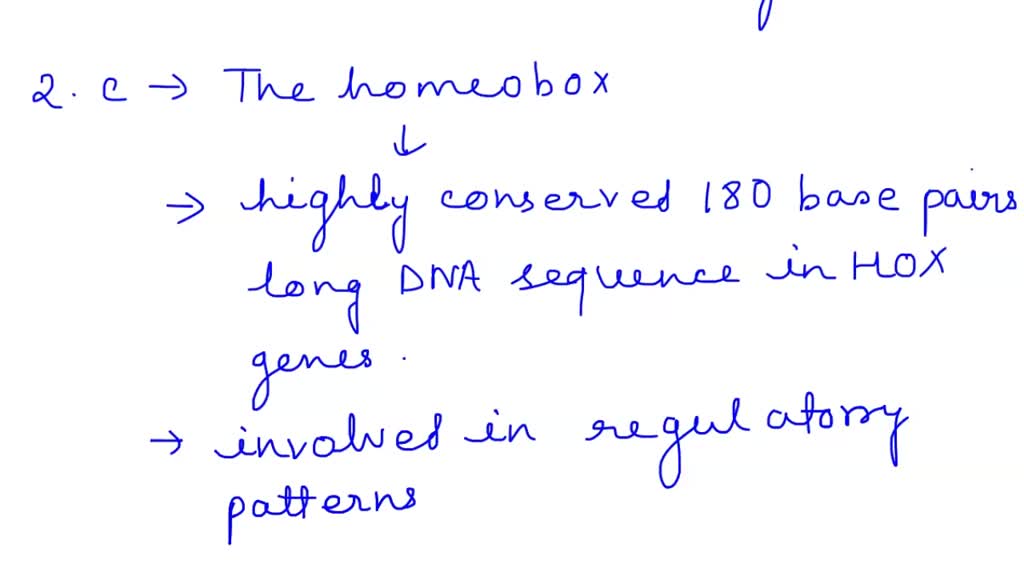 2. c → The homeobox
↓
→ highly conserved 180 base pairs
long DNA sequence in HOX
genes.
→ involved in regulatory
patterns